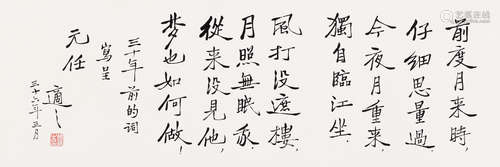 前度月来時，
仔细思量過．
今夜月重来，
獨自臨江坐．
風打没遮樓，
月照無眠我．
從来没見他，
梦也如何做！
三十年前的词
寫呈
元任
適之
三十六年三月